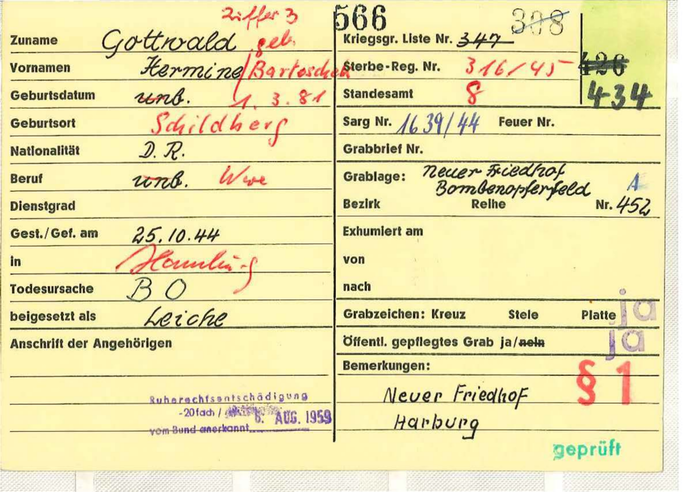 Ziffer 3
566
308
Zuname Gottwald geb.
Kriegsgr. Liste Nr. 347
Vornamen Hermine/Bartoschek
Sterbe-Reg. Nr. 316/45
426
Geburtsdatum unb. 1.3.81
Standesamt 8
434
Geburtsort Schildberg
Sarg Nr. 1639/44 Feuer Nr.
Nationalität D.R.
Grabbrief Nr.
Beruf unb. Wwe
Grablage: Neuer Friedhof
Bombenopferfeld A
Dienstgrad
Bezirk Reihe Nr. 452
Gest./Gef. am 25.10.44
Exhumiert am
in Hamburg
von
Todesursache BO
nach
beigesetzt als Leiche
Grabzeichen: Kreuz Stele Platte ja
Anschrift der Angehörigen
Öffentl. gepflegtes Grab ja/nein ja
Bemerkungen: § 1
Ruherechtsentschädigung
-20fach/ 6. AUG. 1959
vom Bund anerkannt
Neuer Friedhof
Harburg
geprüft